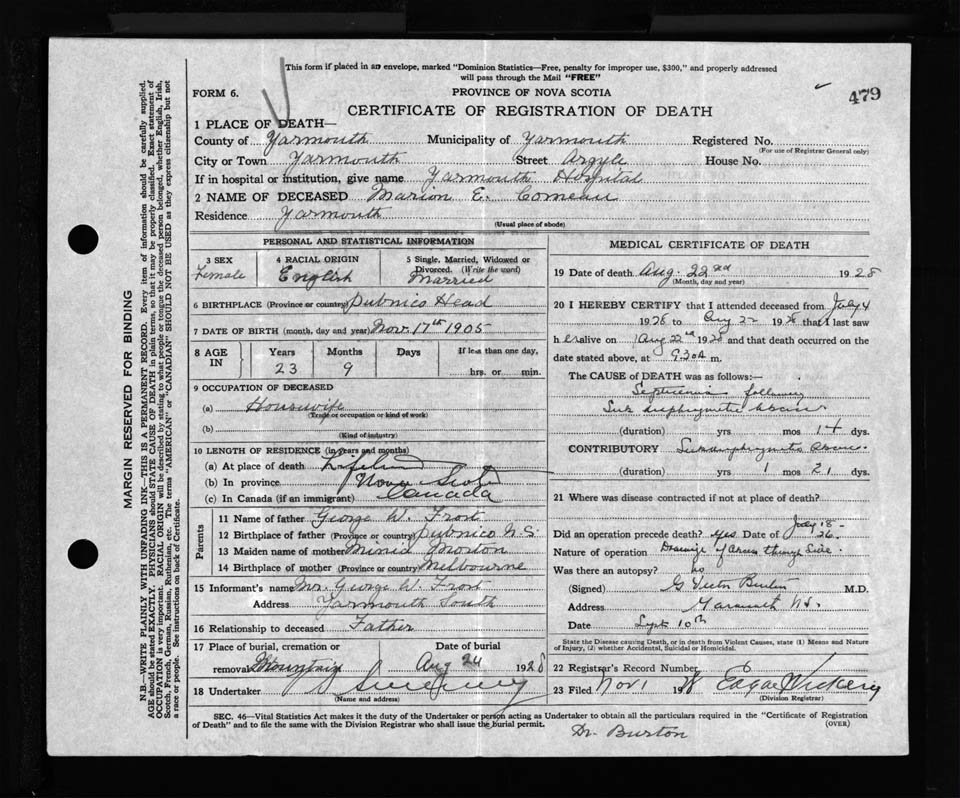 This form if placed in an envelope, marked "Dominion Statistics—Free, penalty for improper use, $300," and properly addressed
will pass through the Mail "FREE"
FORM 6.
PROVINCE OF NOVA SCOTIA
479
CERTIFICATE OF REGISTRATION OF DEATH
1 PLACE OF DEATH—
County of Yarmouth Municipality of Yarmouth Registered No.
(For use of Registrar General only)
City or Town Yarmouth Street Argyle House No.
If in hospital or institution, give name Yarmouth Hospital
2 NAME OF DECEASED Marion E. Comeau
Residence Yarmouth
(Usual place of abode)
PERSONAL AND STATISTICAL INFORMATION
3 SEX 4 RACIAL ORIGIN 5 Single, Married, Widowed or
Divorced. (Write the word)
Female English Married
6 BIRTHPLACE (Province or country) Pubnico Head
7 DATE OF BIRTH (month, day and year) Nov. 17th 1905
8 AGE IN Years Months Days If less than one day,
23 9 hrs. or min.
9 OCCUPATION OF DECEASED
(a) Housewife
(Trade or occupation or kind of work)
(b)
(Kind of industry)
10 LENGTH OF RESIDENCE (in years and months)
(a) At place of death Lifetime
(b) In province Nova Scotia
(c) In Canada (if an immigrant) Canada
Parents
11 Name of father George W. Frost
12 Birthplace of father (Province or country) Pubnico N.S.
13 Maiden name of mother Morton
14 Birthplace of mother (Province or country) Melbourne
15 Informant's name Mr. George W. Frost
Address Yarmouth South
16 Relationship to deceased Father
17 Place of burial, cremation or Date of burial
removal Mountain Aug 24 1928
18 Undertaker Sweeney
(Name and address)
MEDICAL CERTIFICATE OF DEATH
19 Date of death Aug. 22nd 1928
(Month, day and year)
20 I HEREBY CERTIFY that I attended deceased from July 4
1928 to Aug 22 1928 that I last saw
her alive on Aug 22nd 1928 and that death occurred on the
date stated above, at 9.20 A m.
The CAUSE OF DEATH was as follows:—
Septicemia following
Sub diaphragmatic abscess
(duration) yrs mos 14 dys.
CONTRIBUTORY Subdiaphragmatic abscess
(duration) yrs 1 mos 21 dys.
21 Where was disease contracted if not at place of death?
Did an operation precede death? yes Date of July 18-
Nature of operation Drainage through side.
Was there an autopsy? no
(Signed) G Victor Burton M.D.
Address Yarmouth N.S.
Date Sept 10th
State the Disease causing Death, or in death from Violent Causes, state (1) Means and Nature
of Injury, (2) whether Accidental, Suicidal or Homicidal.
22 Registrar's Record Number 6
23 Filed Nov 1 1928 Edgar Vickery
(Division Registrar)
SEC. 46—Vital Statistics Act makes it the duty of the Undertaker or person acting as Undertaker to obtain all the particulars required in the "Certificate of Registration
of Death" and to file the same with the Division Registrar who shall issue the burial permit. (OVER)
Dr. Burton
MARGIN RESERVED FOR BINDING
N.B.—WRITE PLAINLY WITH UNFADING INK—THIS IS A PERMANENT RECORD. Every item of information should be carefully supplied.
AGE should be stated EXACTLY. PHYSICIANS should STATE CAUSE OF DEATH in plain terms, so that it may be properly classified. Exact statement of
OCCUPATION is very important. RACIAL ORIGIN will be described by stating to what people or tongue the deceased person belonged, whether English, Irish,
Scotch, French, German, Russian, Ruthenian, etc. The terms "AMERICAN" or "CANADIAN" SHOULD NOT BE USED as they express citizenship but not
a race or people. See instructions on back of Certificate.